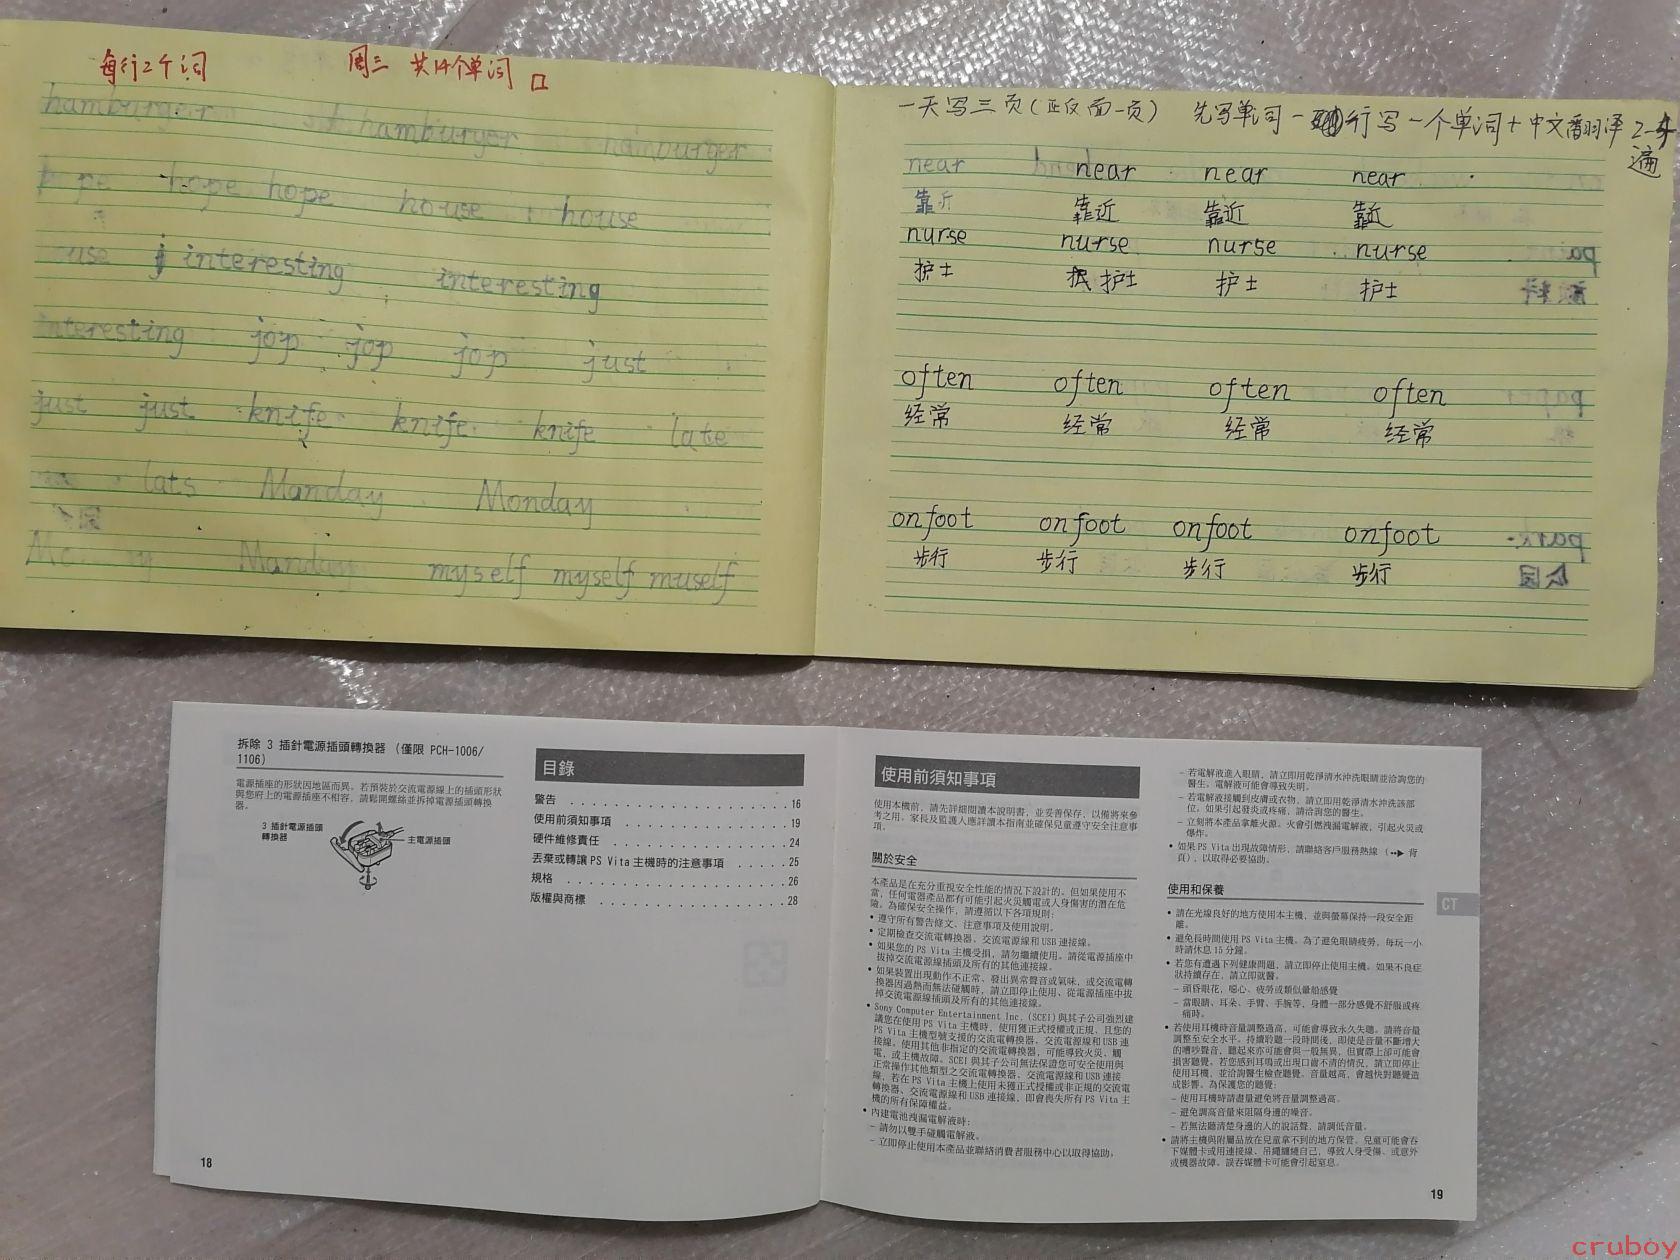 每行2个词 周三 共14个单词 口
hamburger hamburger hamburger
pe hope hope house house
use interesting interesting
interesting jop jop jop just
just just knife knife knife late
lats Manday Monday
Manday myself myself muself
一天写三页(正反面一页) 先写单词一行写一个单词+中文翻译2-
遍
near near near near
靠近 靠近 靠近 靠近
nurse nurse nurse nurse
护士 护士 护士 护士
often often often often
经常 经常 经常 经常
onfoot onfoot onfoot onfoot
步行 步行 步行 步行
拆除 3 插針電源插頭轉換器 (僅限 PCH-1006/
1106)
電源插座的形狀因地區而異。若預裝於交流電源線上的插頭形狀
與您府上的電源插座不相容，請鬆開螺絲並拆掉電源插頭轉換
器。
3 插針電源插頭
轉換器
主電源插頭
18
目錄
警告 16
使用前須知事項 19
硬件維修責任 24
丟棄或轉讓 PS Vita 主機時的注意事項 25
規格 26
版權與商標 28
使用前須知事項
使用本機前，請先詳細閱讀本說明書，並妥善保存，以備將來參
考之用。家長及監護人應詳讀本指南並確保兒童遵守安全注意事
項。
關於安全
本產品是在充分重視安全性能的情況下設計的。但如果使用不
當，任何電器產品都有可能引起火災觸電或人身傷害的潛在危
險。為確保安全操作，請遵循以下各項規則:
• 遵守所有警告條文、注意事項及使用說明。
• 定期檢查交流電轉換器、交流電源線和 USB 連接線。
• 如果您的 PS Vita 主機受損，請勿繼續使用。請從電源插座中
拔掉交流電源線插頭及所有的其他連接線。
• 如果裝置出現動作不正常、發出異常聲音或氣味，或交流電轉
換器因過熱而無法碰觸時，請立即停止使用、從電源插座中拔
掉交流電源線插頭及所有的其他連接線。
• Sony Computer Entertainment Inc. (SCEI) 與其子公司強烈建
議您在使用 PS Vita 主機時，使用獲正式授權或正規、且您的
PS Vita 主機型號支援的交流電轉換器、交流電源線和 USB 連
接線。使用其他非指定的交流電轉換器，可能導致火災、觸
電，或主機故障。SCEI 與其子公司無法保證您可安全使用與
正常操作其他類型之交流電轉換器、交流電源線和 USB 連接
線，若在 PS Vita 主機上使用未獲正式授權或非正規的交流電
轉換器、交流電源線和 USB 連接線，即會喪失所有 PS Vita 主
機的所有保障權益。
• 內建電池洩漏電解液時:
– 請勿以雙手碰觸電解液。
– 立即停止使用本產品並聯絡消費者服務中心以取得協助。
– 若電解液進入眼睛，請立即用乾淨清水沖洗眼睛並洽詢您的
醫生。電解液可能會導致失明。
– 若電解液接觸到皮膚或衣物，請立即用乾淨清水沖洗該部
位。如果引起發炎或疼痛，請洽詢您的醫生。
– 立刻將本產品拿離火源。火會引燃洩漏電解液，引起火災或
爆炸。
• 如果 PS Vita 出現故障情形，請聯絡客戶服務熱線 (••▶ 背
頁)，以取得必要協助。
使用和保養
• 請在光線良好的地方使用本主機，並與螢幕保持一段安全距
離。
• 避免長時間使用 PS Vita 主機。為了避免眼睛疲勞，每玩一小
時請休息 15 分鐘。
• 若您有遭遇下列健康問題，請立即停止使用主機。如果不良症
狀持續存在，請立即就醫。
– 頭昏眼花，噁心、疲勞或類似暈船感覺
– 當眼睛、耳朵、手臂、手腕等，身體一部分感覺不舒服或疼
痛時。
• 若使用耳機時音量調整過高，可能會導致永久失聰。請將音量
調整至安全水平。持續聆聽一段時間後，即使是音量不斷增大
的嘈吵聲音，聽起來亦可能會與一般無異，但實際上卻可能會
損害聽覺。若您感到耳鳴或出現口齒不清的情況，請立即停止
使用耳機，並洽詢醫生檢查聽覺。音量越高，會越快對聽覺造
成影響。為保護您的聽覺:
– 使用耳機時請盡量避免將音量調整過高。
– 避免調高音量來阻隔身邊的噪音。
– 若無法聽清楚身邊的人的說話聲，請調低音量。
• 請將主機與附屬品放在兒童拿不到的地方保管。兒童可能會吞
下媒體卡或用連接線、吊繩纏繞自己，導致人身受傷、或意外
或機器故障。誤吞媒體卡可能會引起窒息。
CT
19
cruboy